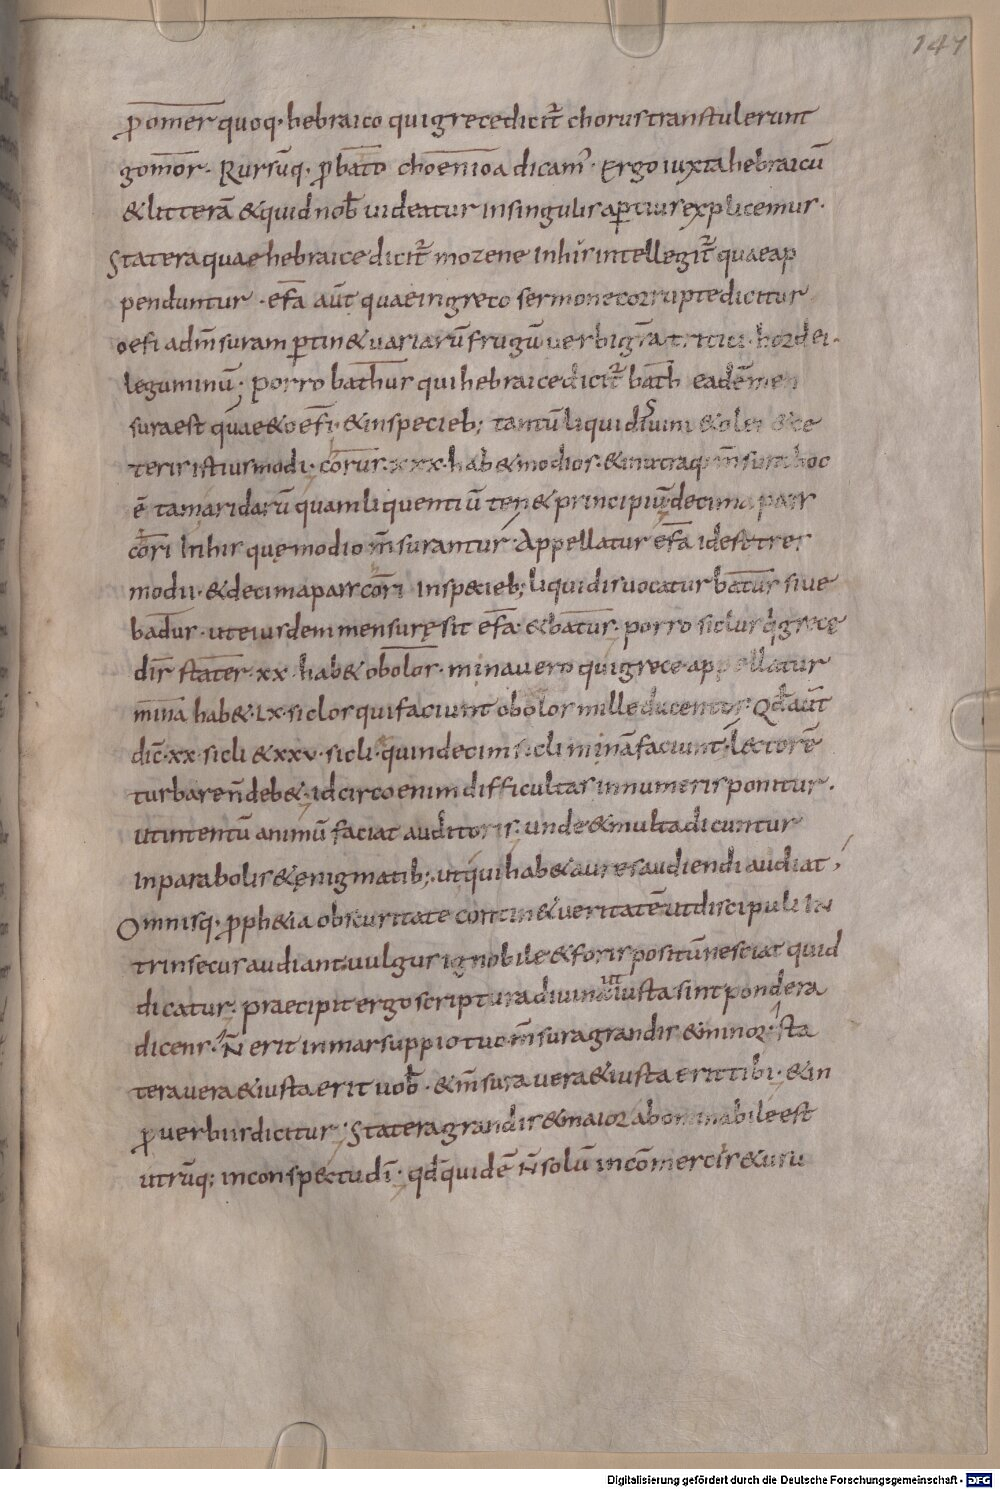 147
p̄ omer quoq· hebraico qui grece dicit̄ chorus transtulerunt
gomor· Rursūq· p̄ bato choenioa dicam᾽· Ergo iuxta hebraicū
& litterā & quid nob̄ uideatur in singulis aptius explicemus·
Statera quae hebraice dicit̄ mozene in his intellegit̄ quae ap
penduntur· efa aūt quae in greco sermone corrupte dicitur
oefi ad m̄suram ptin& uariarū frugū uerbi gr̄a tritici· hordei·
leguminū; porro bathus qui hebraice dicit̄ bath eadē men
sura est quae & oefi· & in specieb; tantū liquidis uini & olei & ce
teris istiusmodi· corus· xxx· hab& modios· & in utraq; m̄sura hoc
ē tam aridarū quam liquentiū ten& principiū; decima pars
cori In his quę modio m̄surantur· Appellatur efa id est tres
modii· & decima pars cori In specieb; liquidis uocatur batus siue
badus· ut eiusdem mensurę sit efa· & batus· porro siclus q̄ grecę
dīr stater· xx· hab& obolos· mina uero qui grece appellatur
mina hab& Lx· siclos qui faciunt obolos mille ducentos· Qd̄ aūt
dic̄· xx· sicli & xxv· sicli· quindecim sicli minā faciunt· lectorē
turbare n̄ deb&· idcirco enim difficultas in numeris ponitur·
ut intentū animū faciat auditoris; unde & multa dicuntur
In parabolis & ęnigmatib; ut qui hab& aures audiendi audiat;
Omnisq· p̄ph&ia obscuritate contin& ueritatē ut discipuli IN
trinsecus audiant· uulgus ignobile & foris positū nesciat quid
dicatur; praecipit ergo scriptura diuina ut iusta sint pondera
dicens· N̄ erit in marsuppio tuo m̄sura grandis & minor· sta
tera uera & iusta erit uob̄· & m̄sura uera & iusta erit tibi· & in
p̄uerbiis dicitur; Statera grandis & maior abominabile est
utrūq; in conspectu dī· qd̄ quidē n̄ solū in cōmerciis & usu
Digitalisierung gefördert durch die Deutsche Forschungsgemeinschaft - DFG